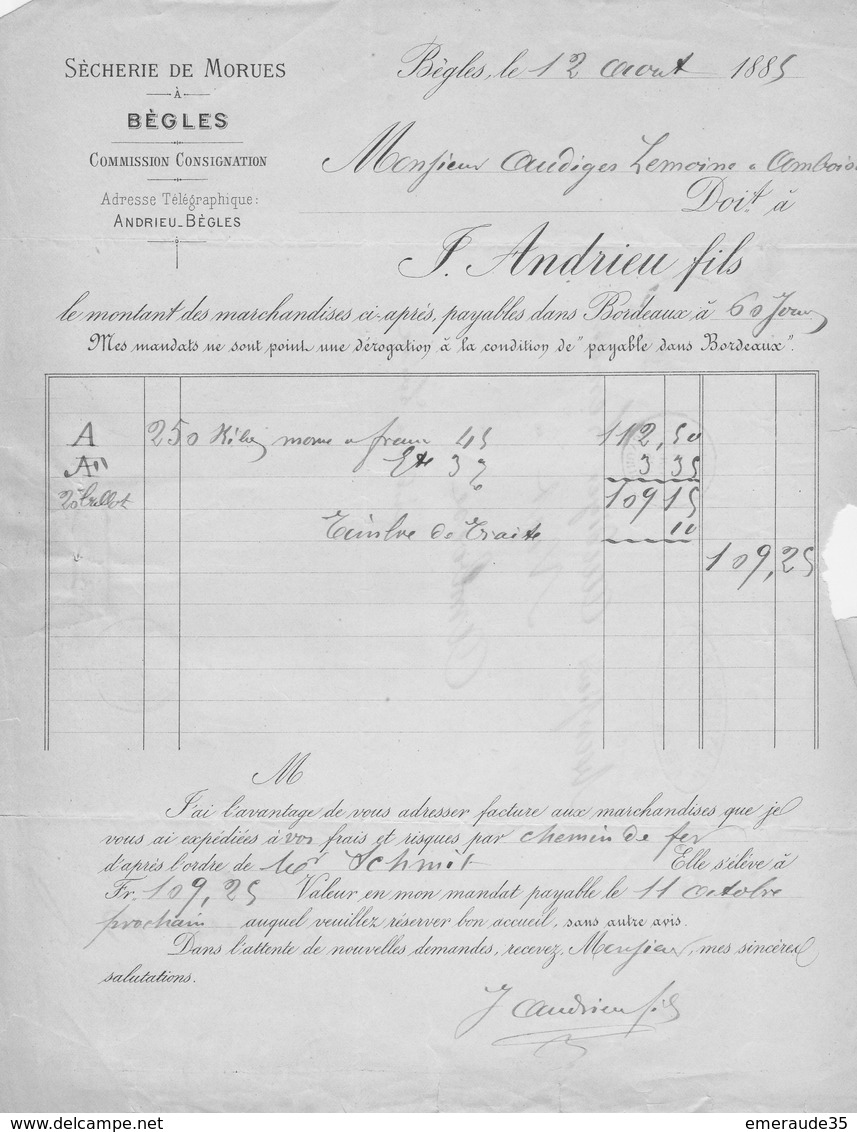 SÈCHERIE DE MORUES
À
BÈGLES
COMMISSION CONSIGNATION
Adresse Télégraphique:
ANDRIEU-BÈGLES
Bègles, le 12 Aout 1885
Monsieur Audiges Lemoine a Ambois
Doit à
F. Andrieu fils
le montant des marchandises ci-après, payables dans Bordeaux à 60 Jours
Mes mandats ne sont point une dérogation à la condition de "payable dans Bordeaux".
A 250 Kilog morue a francs 45 112,50
A" Ete 3% 3 35
109 15
Timbre de Traite 10
109,25
M
J'ai l'avantage de vous adresser facture aux marchandises que je
vous ai expédiées à vos frais et risques par chemin de fer
d'après l'ordre de Mr Schmit Elle s'élève à
Fr. 109,25 Valeur en mon mandat payable le 11 octobre
prochain auquel veuillez réserver bon accueil, sans autre avis.
Dans l'attente de nouvelles demandes, recevez, Monsieur, mes sincères
salutations.
J Andrieu fils
delcampe.net
emeraude35